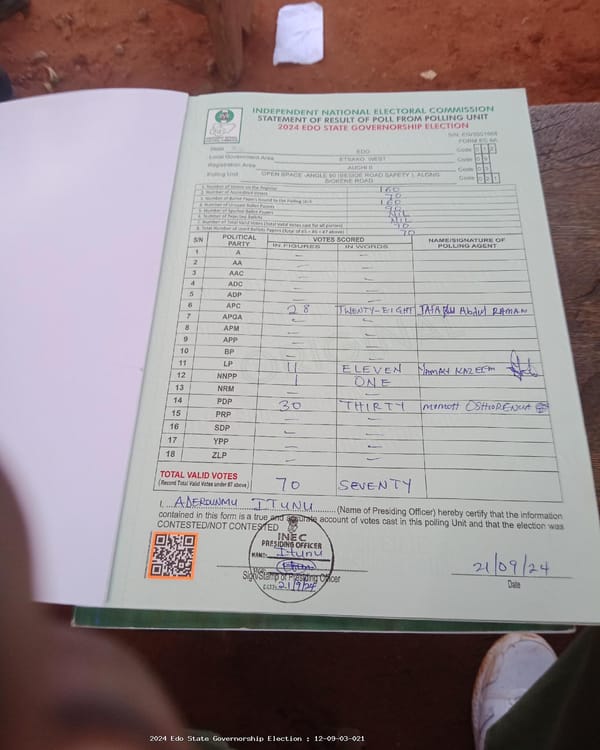 INDEPENDENT NATIONAL ELECTORAL COMMISSION
STATEMENT OF RESULT OF POLL FROM POLLING UNIT
2024 EDO STATE GOVERNORSHIP ELECTION
FORM EC 8A
State EDO Code
Local Government Area ETSAKO WEST Code
Registration Area AUCHI II Code
Polling Unit OPEN SPACE -ANGLE 90 (BESIDE ROAD SAFETY ), ALONG Code
ROAD
1. Number of Voters on the Register 160
2. Number of Accredited Voters 70
3. Number of Ballot Papers Issued to the Polling Unit 160
4. Number of Unused Ballot Papers 90
5. Number of Spoiled Ballot Papers NIL
6. Number of Rejected Ballots NIL
7. Number of Total Valid Votes (Total Valid Votes cast for all parties) 70
8. Total Number of Used Ballot Papers (Total of #5 + #6 + #7 above) 70
S/N POLITICAL PARTY VOTES SCORED NAME/SIGNATURE OF POLLING AGENT
IN FIGURES IN WORDS
1 A — —
2 AA — —
3 AAC — —
4 ADC — —
5 ADP — —
6 APC 28 TWENTY-EIGHT Abdul RAMAN
7 APGA — —
8 APM — —
9 APP — —
10 BP — —
11 LP 11 ELEVEN KAZEEM
12 NNPP 1 ONE
13 NRM — —
14 PDP 30 THIRTY
15 PRP — —
16 SDP — —
17 YPP — —
18 ZLP — —
TOTAL VALID VOTES 70 SEVENTY
(Record Total Valid Votes under #7 above)
I, ADERUNMU ITUNU (Name of Presiding Officer) hereby certify that the information
contained in this form is a true and accurate account of votes cast in this polling Unit and that the election was
CONTESTED/NOT CONTESTED
INEC
PRESIDING OFFICER
NAME: Itunu
Sign/Stamp of Presiding Officer
DATE: 21/9/24
21/09/24
Date
2024 Edo State Governorship Election : 12-09-03-021